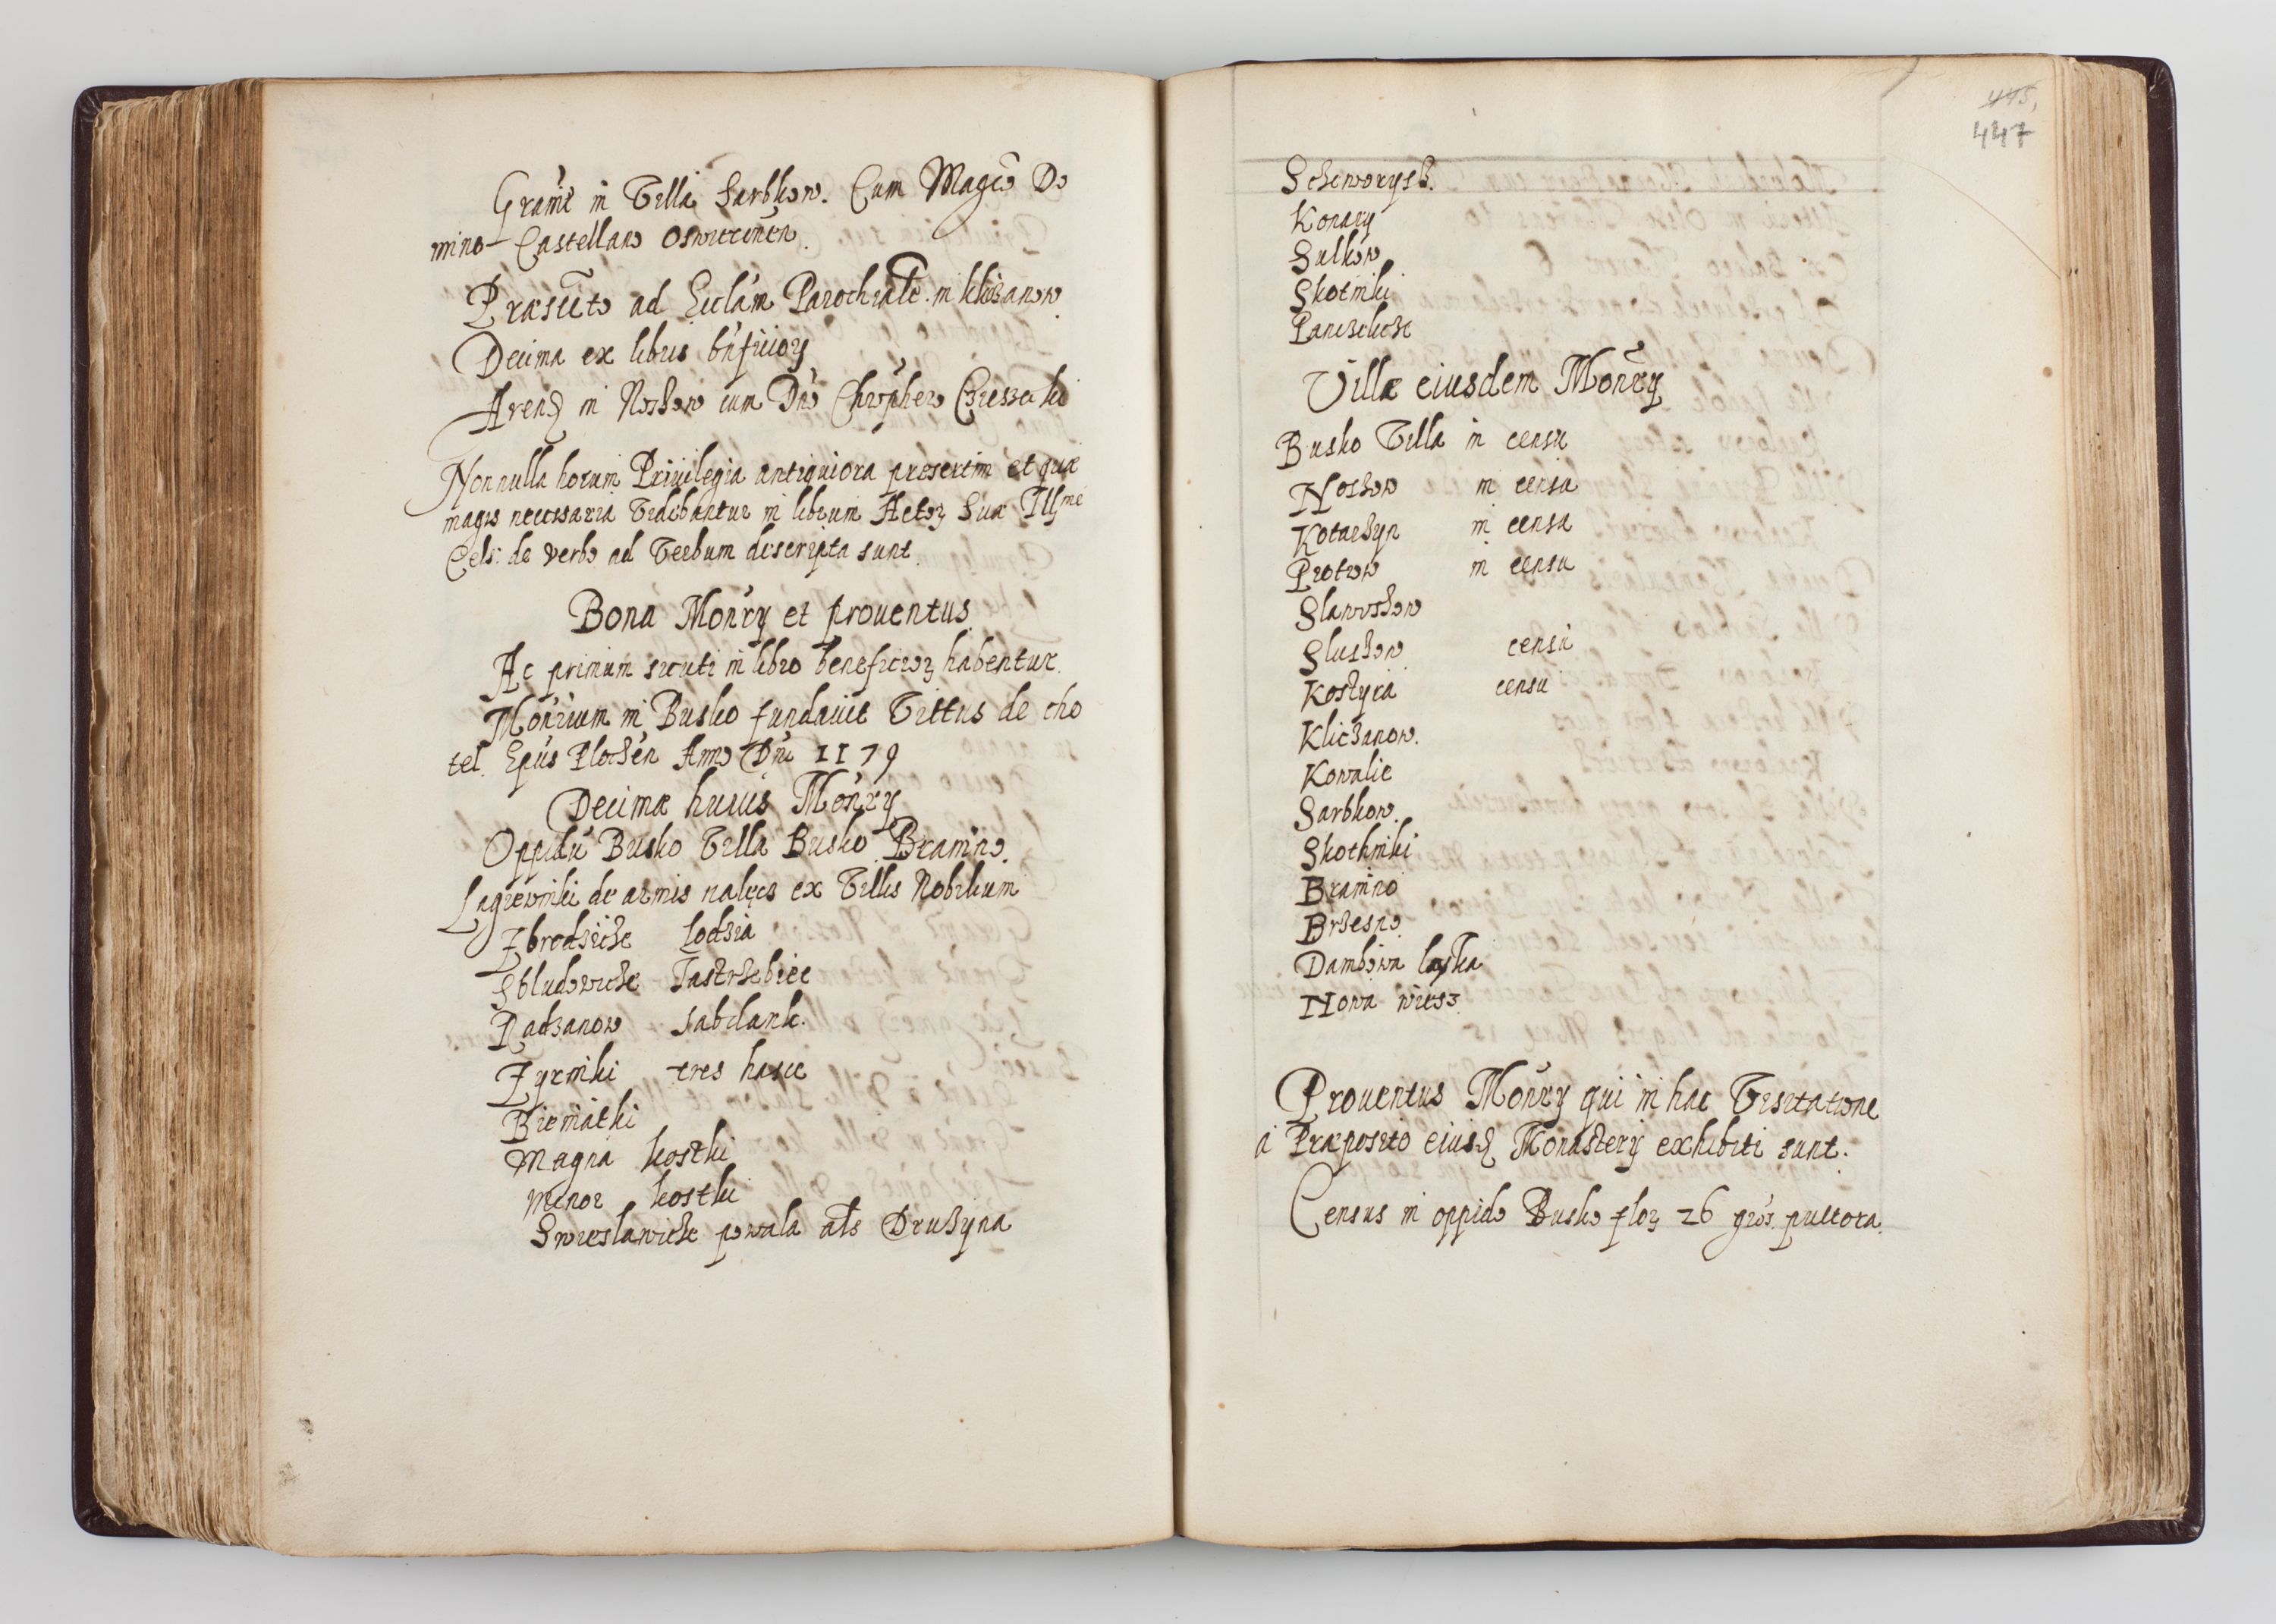 Granic in Villa Sarbkow. Cum Magco Do
mino Castellano Oswiecimen.
Præsetto ad Ecclam Parochiale in klicżanow.
Decima ex libris bnficioȝ
Arend in Noskow cum Dno Chrophero
Nonnulla horum Priuilegia antiquiora presertim et quæ
magis necessaria Videbantur in librum Actoȝ Suæ Illme
Cels: de verbo ad Verbum descripta sunt.
Bona Monry et prouentus
Ac primum sicuti in libro beneficioȝ habentur.
Monrium in Busko fundauit Vittus de cho
tel. Epus Plocżen Anno Dni 1179
Decimæ huius Monry
Oppidu Busko Villa Busko Branino.
Lagiewniki de armis nalęcs ex Villis Nobilium
Zbrodzicże Lodzia
Sbludowicże Jastrżebiec
Radzanow Sabdank.
Zyrniki tres hastæ
Biernatki
Magna kostki
Minor kostki
Swieslawicże powala als Drużyna
445,
447
Schaworysz.
Konary
Sulkow
Skotniki
Pancżelicże
Villæ eiusdem Monry
Busko Villa in censu
Noskow in censu
Kotarżyn in censu
Protow in censu
Slawoskow
Sluskow censu
Kostyra censu
Klicżanow.
Kowalie
Sarbkow.
Skothniki
Branino
Brzesno
Dambowa laska
Nowa wiesz.
Prouentus Monry qui in hac Visitatione
a Præposito eiusd Monasterij exhibiti sunt.
Census in oppido Busko floȝ 26 gros. pultora.